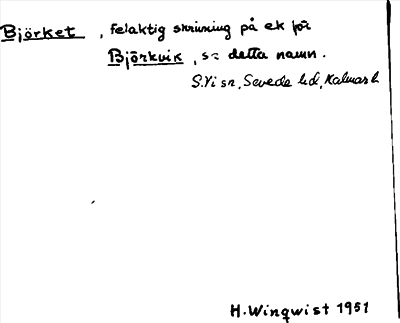 Björket, felaktig skrivning på ek för
Björkvik, se detta namn.
S.Vi sn, Sevede hd, Kalmar l.
H. Winqwist 1951